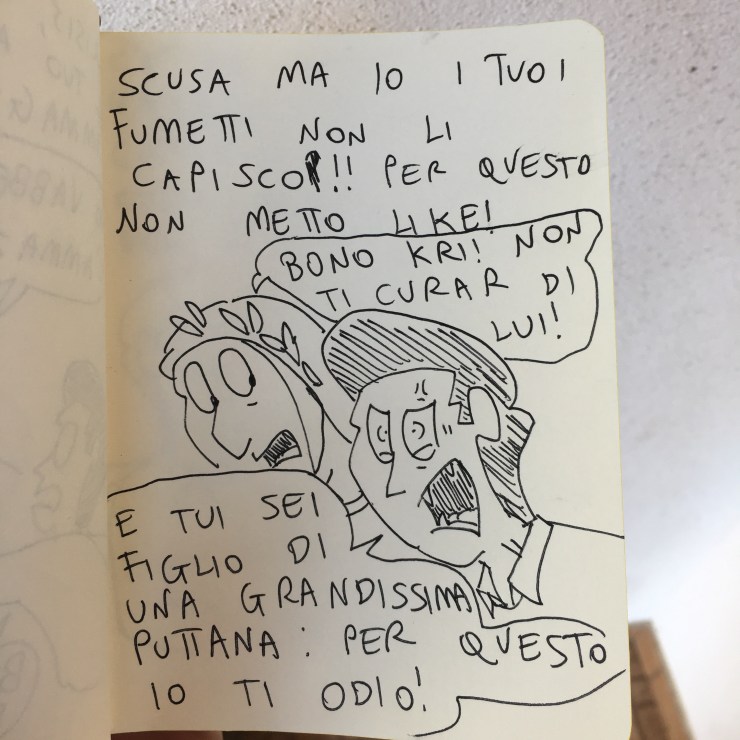 SCUSA MA IO I TUOI
FUMETTI NON LI
CAPISCO!! PER QUESTO
NON METTO LIKE!
BONO KRI! NON
TI CURAR DI
LUI!
E TUI SEI
FIGLIO DI
UNA GRANDISSIMA
PUTTANA: PER QUESTO
IO TI ODIO!